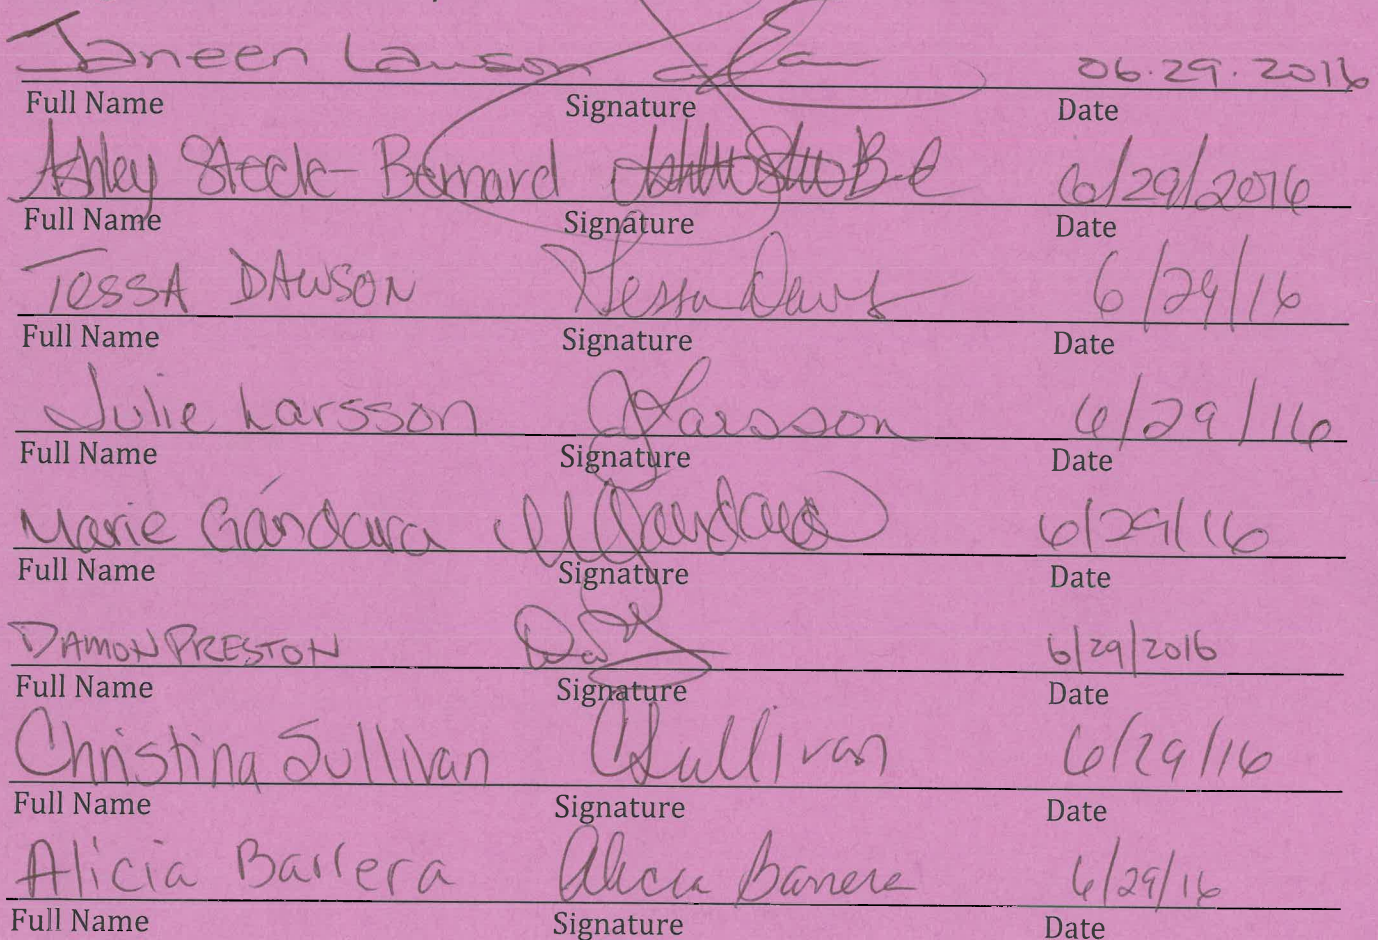 Janeen Lawson 06.29.2016
Full Name Signature Date
Ashley Steele-Bernard 6/29/2016
Full Name Signature Date
Tessa Dawson Tessa Daws 6/29/16
Full Name Signature Date
Julie Larsson JLarsson 6/29/16
Full Name Signature Date
Marie Gándara MGandara 6/29/16
Full Name Signature Date
DAMON PRESTON 6/29/2016
Full Name Signature Date
Christina Sullivan CSullivan 6/29/16
Full Name Signature Date
Alicia Barrera Alicia Barrera 6/29/16
Full Name Signature Date